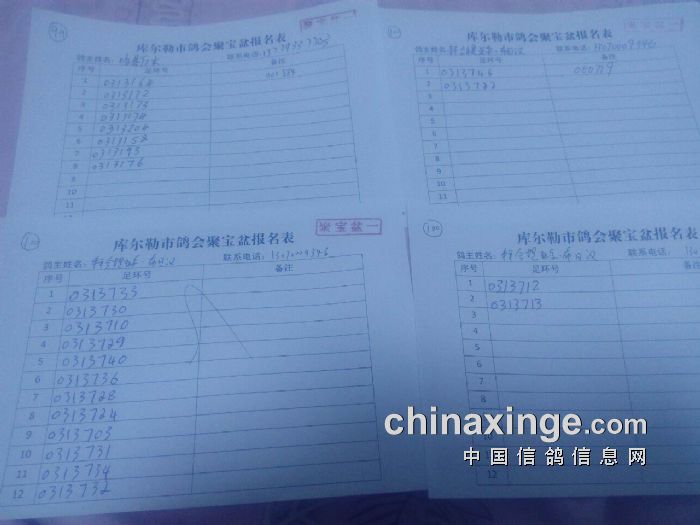 聚宝盆一
库尔勒市鸽会聚宝盆报名表
鸽主姓名:
联系电话:
序号 足环号 备注
1 0313168
2 0313172
3 0313173
4 0313174
5 0313204
6 0313158
7 0313193
8 0313176
9
10
11
库尔勒市鸽会聚宝盆报名表
鸽主姓名:
联系电话:
序号 足环号 备注
1 0313746
2 0313722
3
4
5
6
7
8
9
10
11
100
聚宝盆一
库尔勒市鸽会聚宝盆报名表
鸽主姓名:
联系电话:
序号 足环号 备注
1 0313733
2 0313730
3 0313710
4 0313729
5 0313740
6 0313736
7 0313728
8 0313724
9 0313703
10 0313731
11 0313734
12 0313732
100
库尔勒市鸽会聚宝盆报名表
鸽主姓名:
联系电话:
序号 足环号 备注
1 0313712
2 0313713
3
4
5
6
7
8
9
10
11
12
chinaxinge.com
中国信鸽信息网